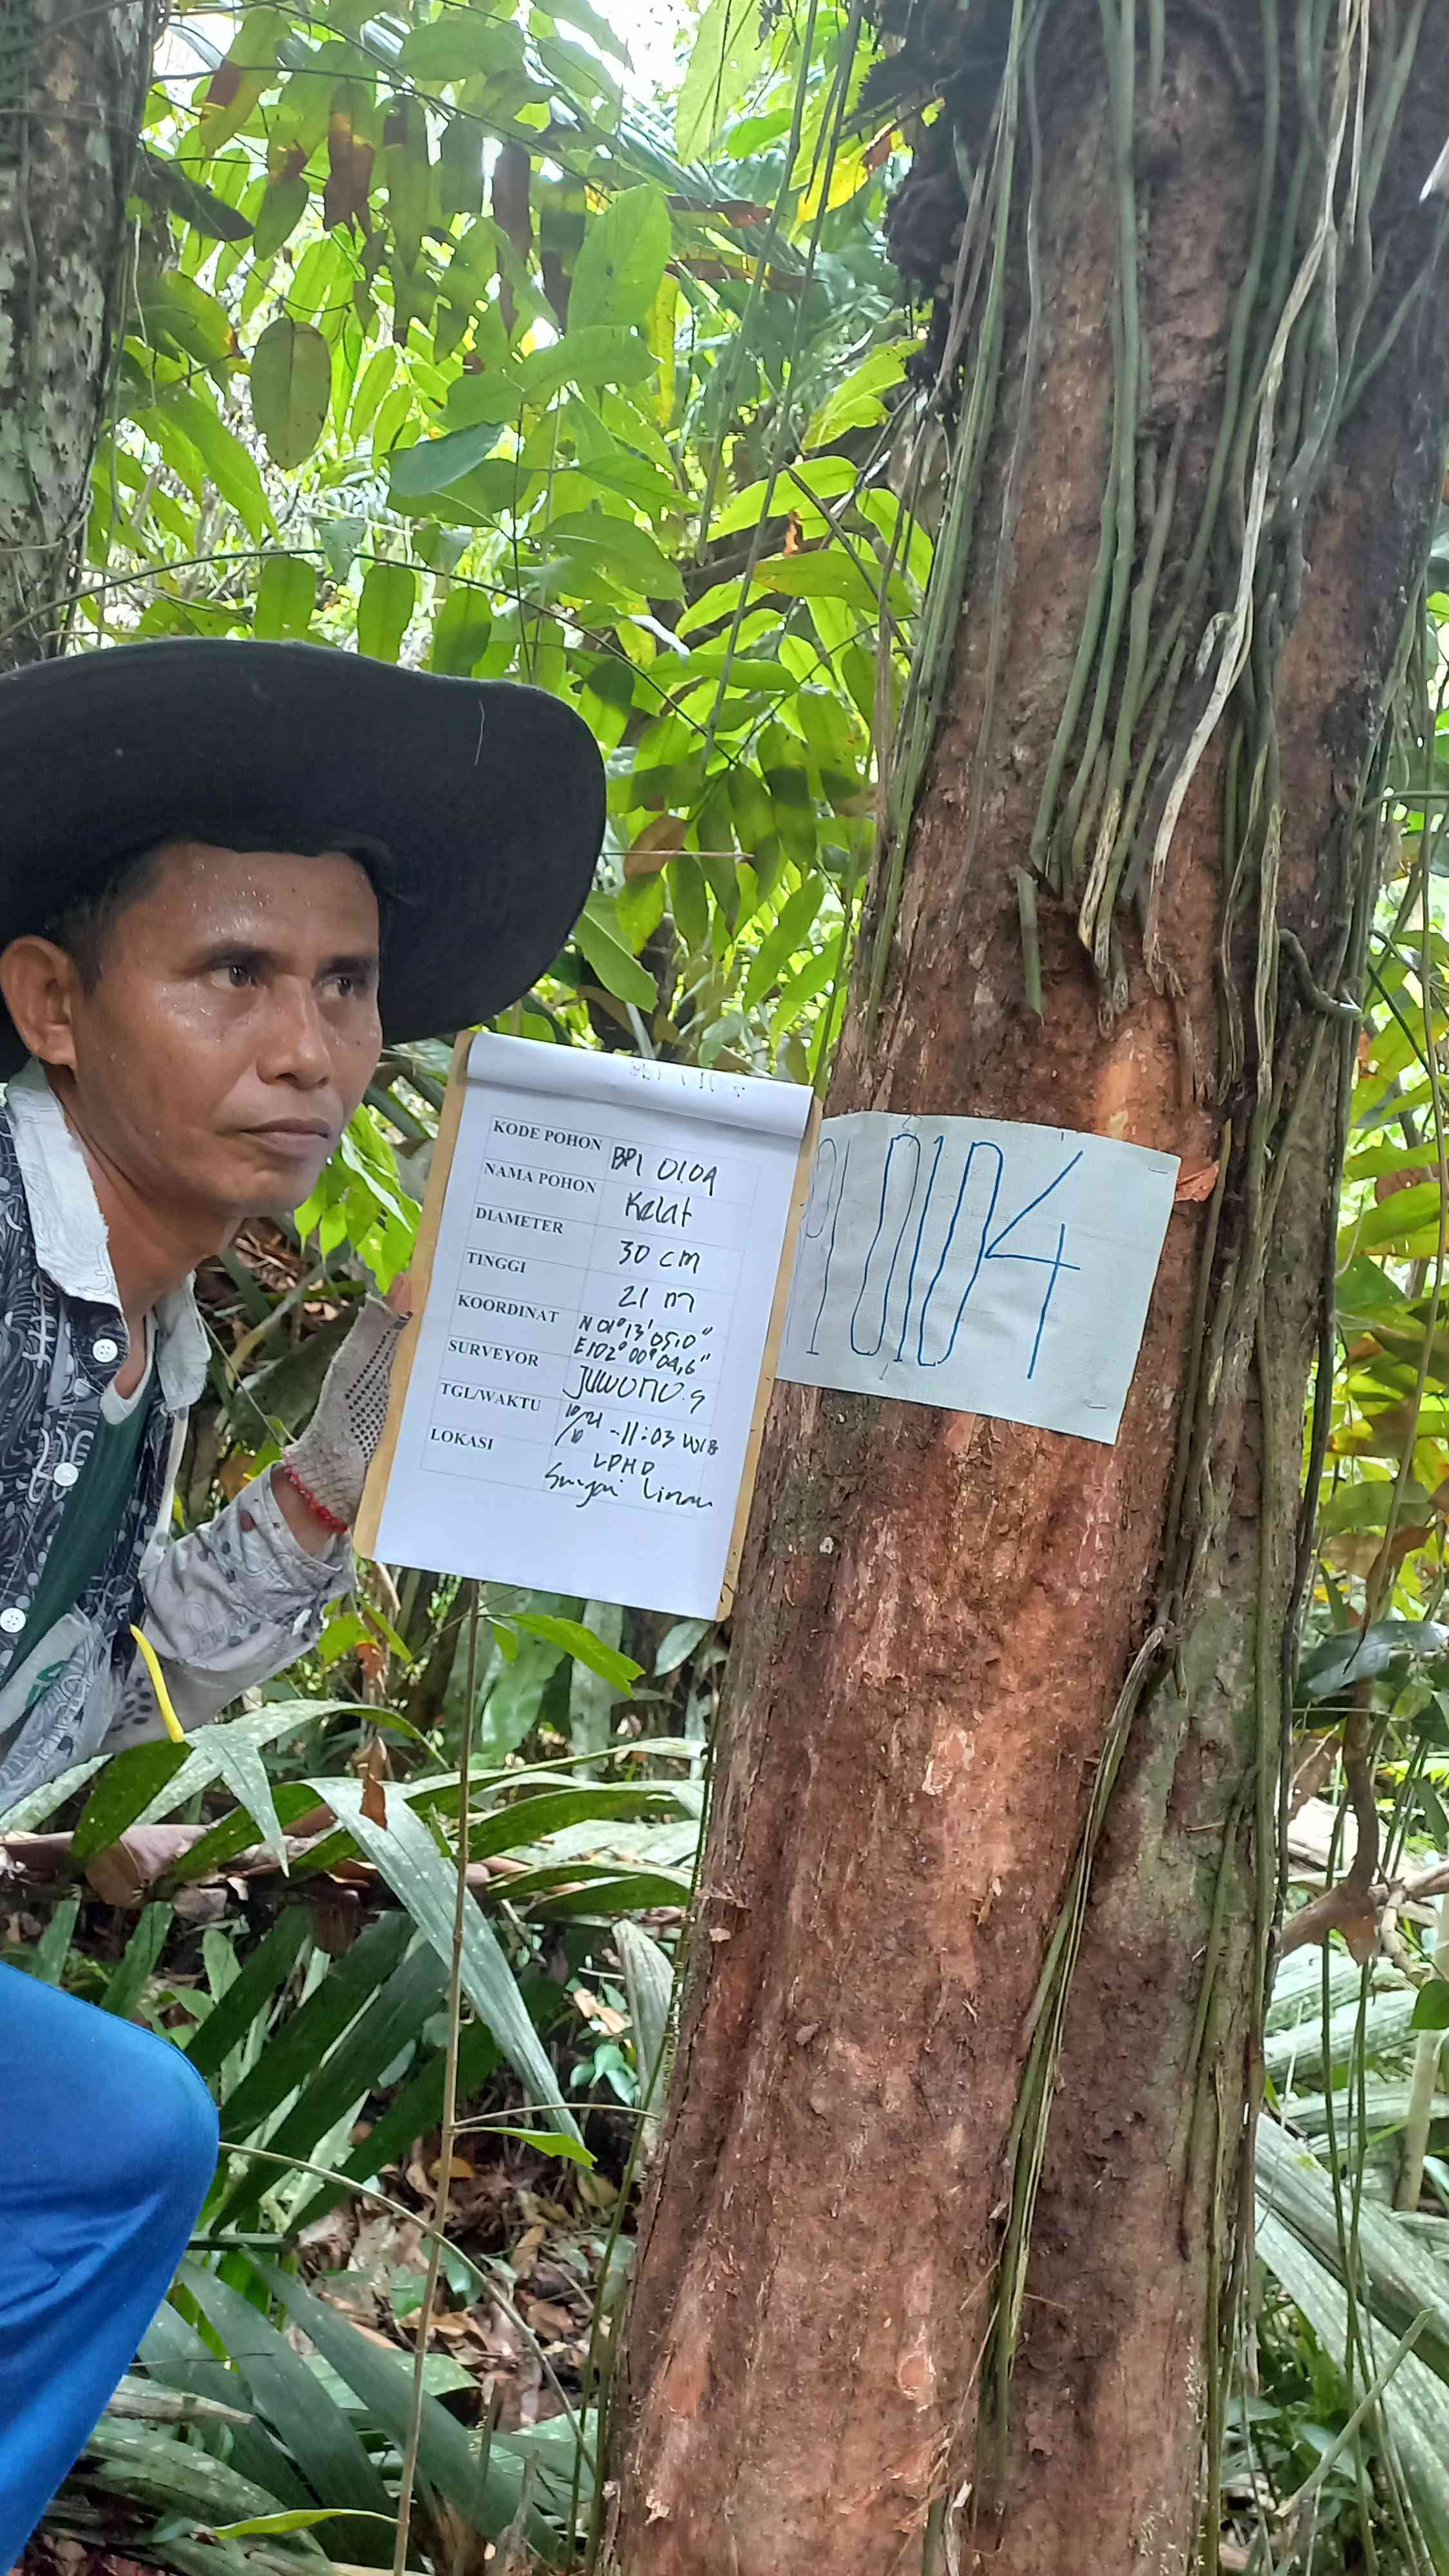 KODE POHON BPI 0104
NAMA POHON Kelat
DIAMETER 30 cm
TINGGI 21 m
KOORDINAT N 01°13'05,0"
E102°00'04,6"
SURVEYOR JUWONO.S
TGL/WAKTU 10/21/10 -11:03 WIB
LOKASI LPHD
Sungai Linau
PI 0104